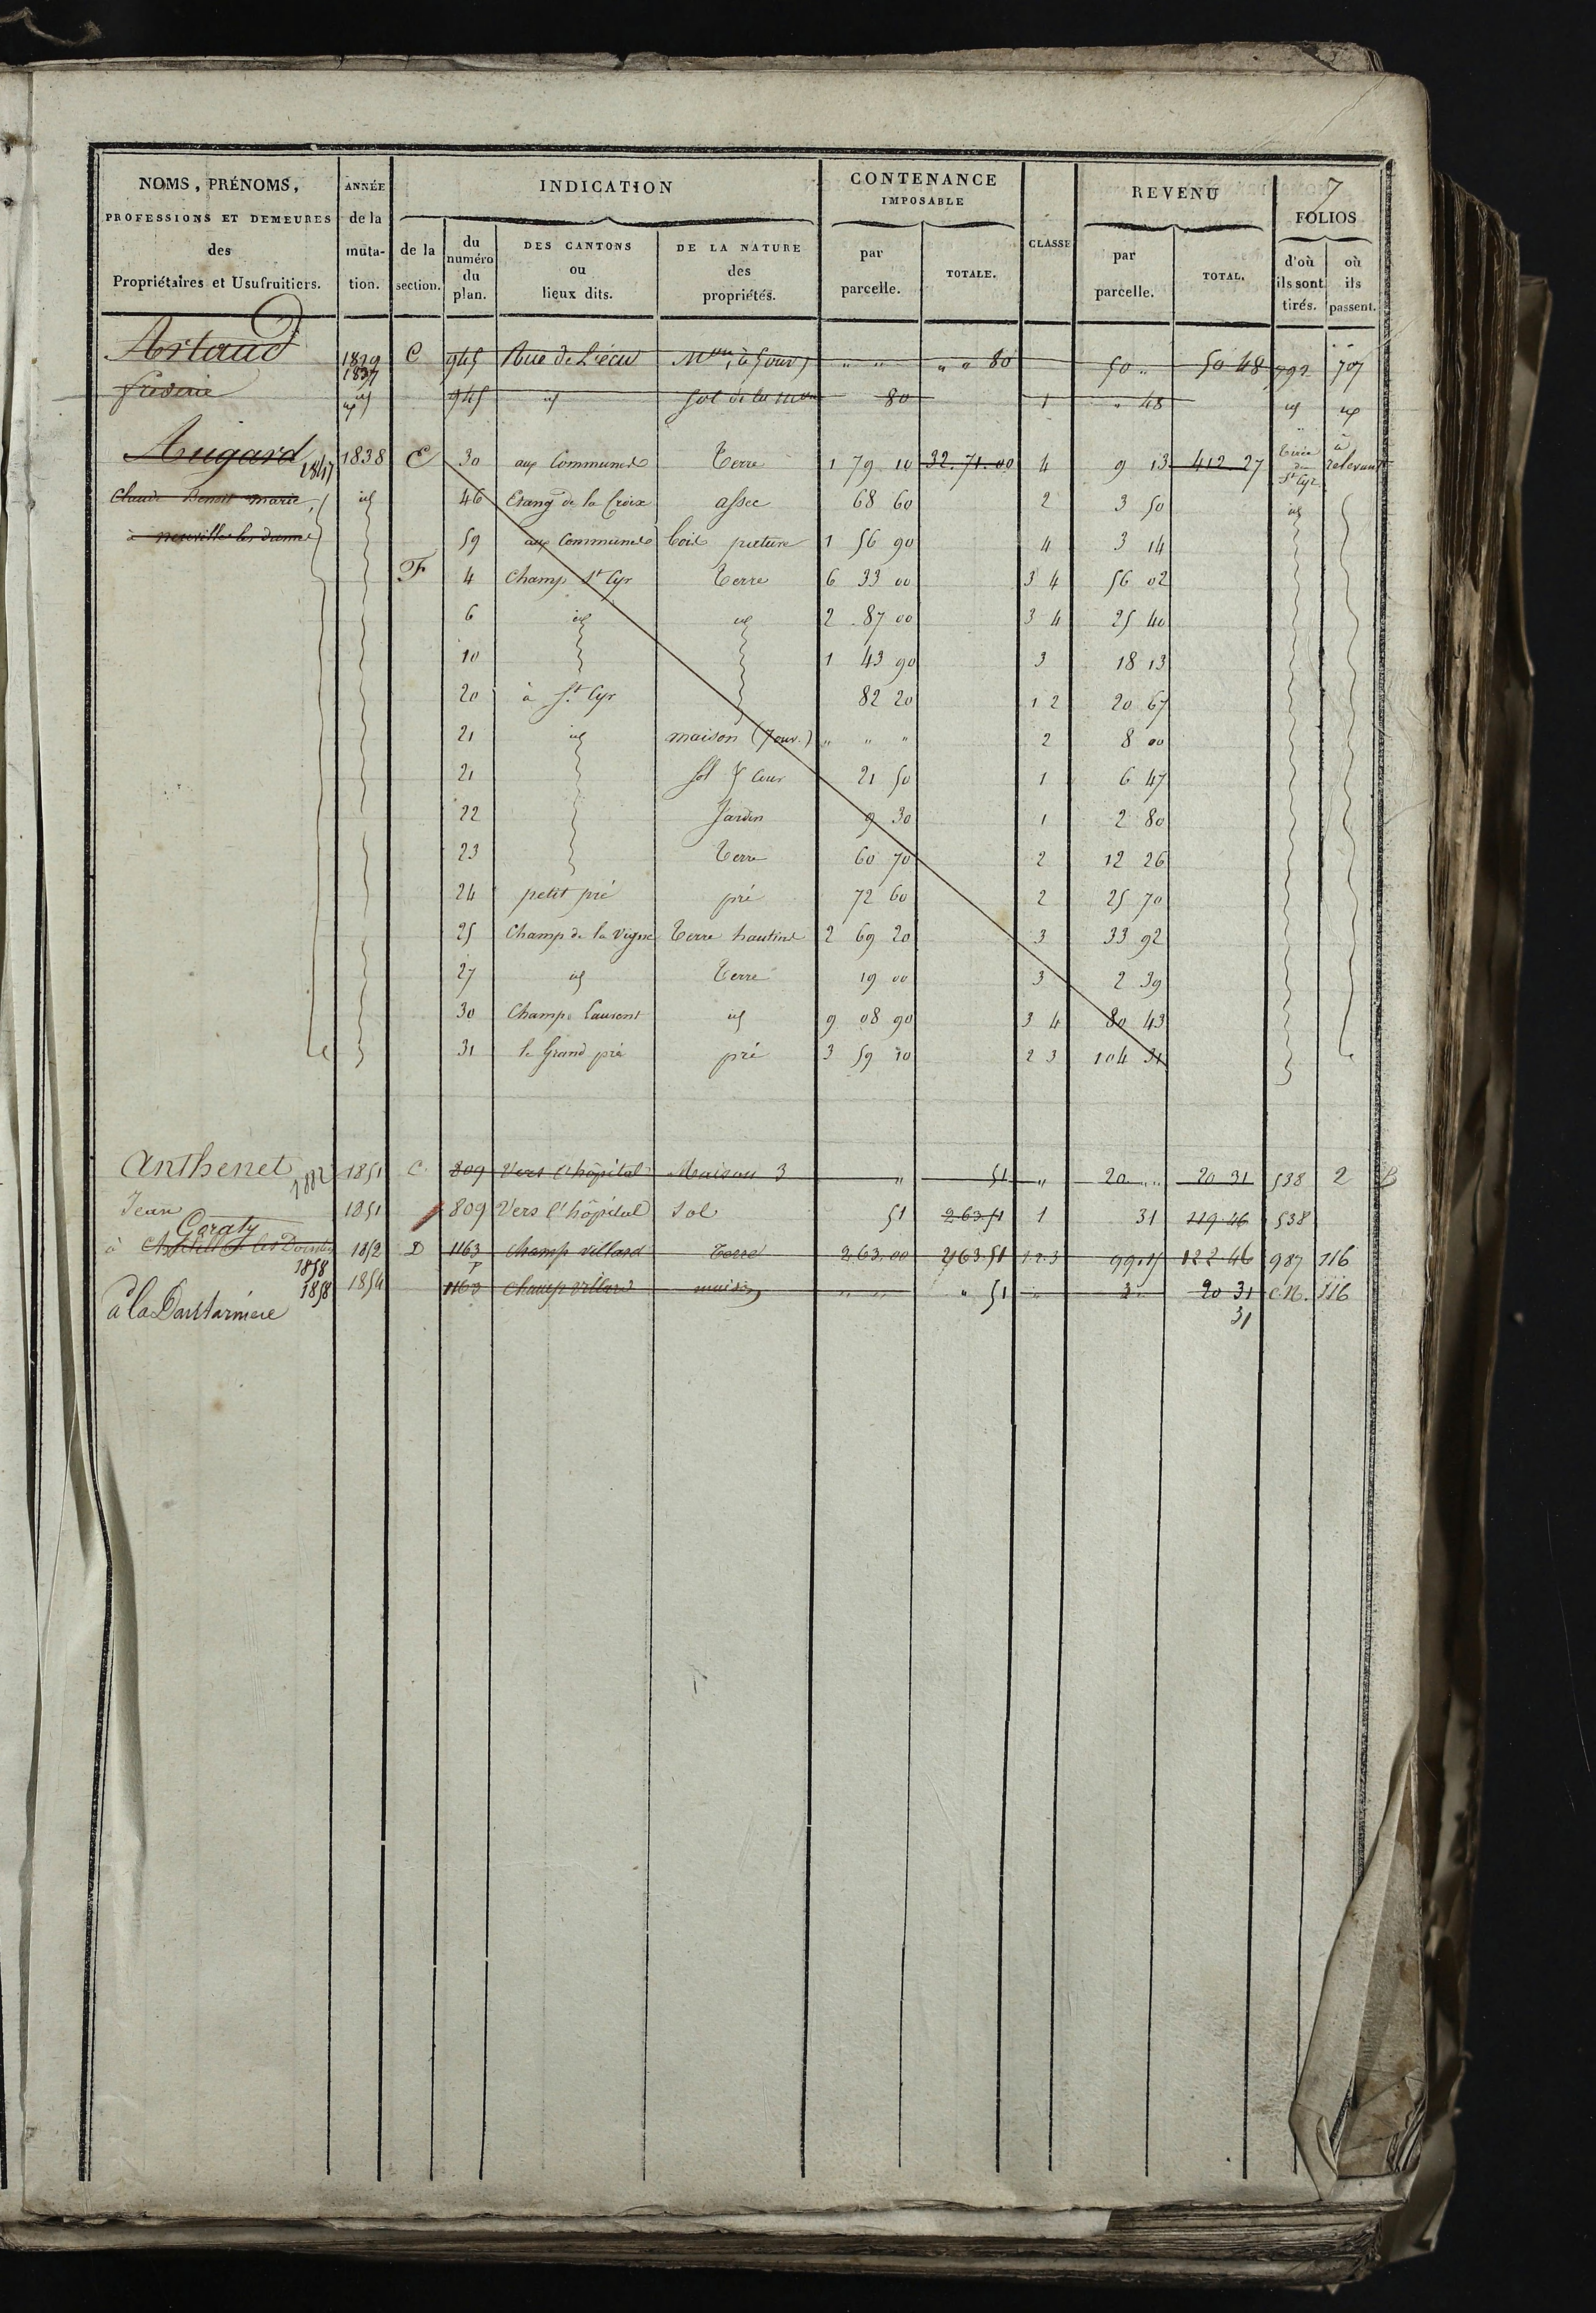 7
NOMS, PRÉNOMS, PROFESSIONS ET DEMEURES des Propriétaires et Usufruitiers. ANNÉE de la muta-tion. INDICATION de la section. du numéro du plan. DES CANTONS ou lieux dits. DE LA NATURE des propriétés. CONTENANCE IMPOSABLE par parcelle. TOTALE. CLASSE REVENU par parcelle. TOTAL. FOLIOS d'où ils sont tirés. où ils passent.
Artaud 1829 1837 C 945 Rue de L'écu Mon, à 5 ouv) " " " " 80 50 " 50 48 992 707
frederic id 945 id Sol de la mon 80 1 " 48 id id
Augard 1847 1838 E 30 aux Communes Terre 1 79 10 32.71.00 4 9 13 412 27 Tirée de St Cyr à relevant
Claude Benoit Marie, id 46 Etang de la Croix assec 68 60 2 3 50 id
à neuville les dames 59 aux Communes bois pature 1 56 90 4 3 14
F 4 Champ St Cyr Terre 6 33 00 3 4 56 02
6 id id 2 87 00 3 4 25 40
10 1 43 90 3 18 13
20 à St Cyr 82 20 1 2 20 67
21 id maison (7 ouv.) " " " 2 8 00
21 Sol & Cour 21 50 1 6 47
22 Jardin 9 30 1 2 80
23 Terre 60 70 2 12 26
24 petit pré pré 72 60 2 25 70
25 Champ de la Vigne Terre hautins 2 69 20 3 33 92
27 id Terre 19 00 3 2 39
30 Champ Laurent id 9 08 90 3 4 80 43
31 le Grand pré pré 3 59 10 2 3 104 31
Anthenet 1882 1851 C 809 Vers l'hôpital Maison 3 " 51 " 20 " " 20 31 538 2 B
Jean 1851 809 Vers l'hôpital Sol 51 2 63 51 1 31 119 46 538
Coraty
à Chatill les Dombes 1858 1852 D 1163 p champ villard Terre 2 63.00 2 63.51 1.2.3 99.15 122.46 987 116
1858 1854 1163 champ villard maison " " " 51 " 3 " 20 31 C.N. 116
à la 31